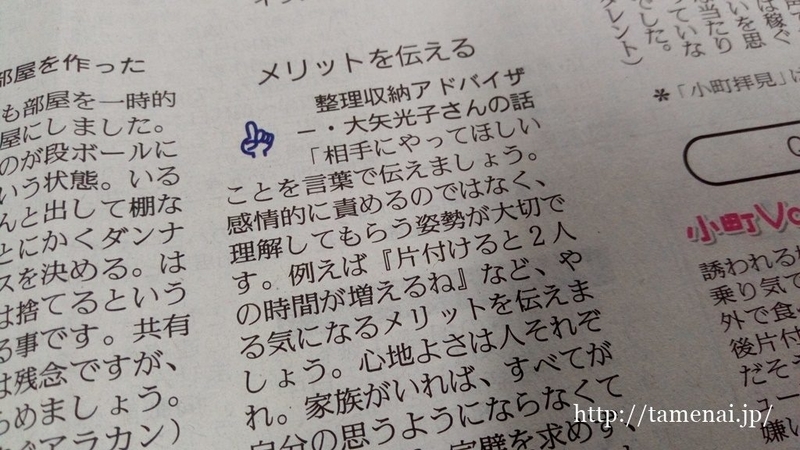 部屋を作った
も部屋を一時的
屋にしました。
のが段ボールに
いう状態。いる
んと出して棚な
とにかくダンナ
スを決める。は
は捨てるという
る事です。共有
は残念ですが、
らめましょう。
アラカン）
メリットを伝える
整理収納アドバイザ
ー・大矢光子さんの話
「相手にやってほしい
ことを言葉で伝えましょう。
感情的に責めるのではなく、
理解してもらう姿勢が大切で
す。例えば『片付けると２人
の時間が増えるね』など、や
る気になるメリットを伝えま
しょう。心地よさは人それぞ
れ。家族がいれば、すべてが
自分の思うようにならなくて
完璧を求めず、
は稼ぐ
いを思
当たり
っていな
でした。
タレント）
＊「小町拝見」は
小町Vo
誘われる
乗り気で
外で食
後片付
だそう
ュー
嫌い
http://tamenai.jp/